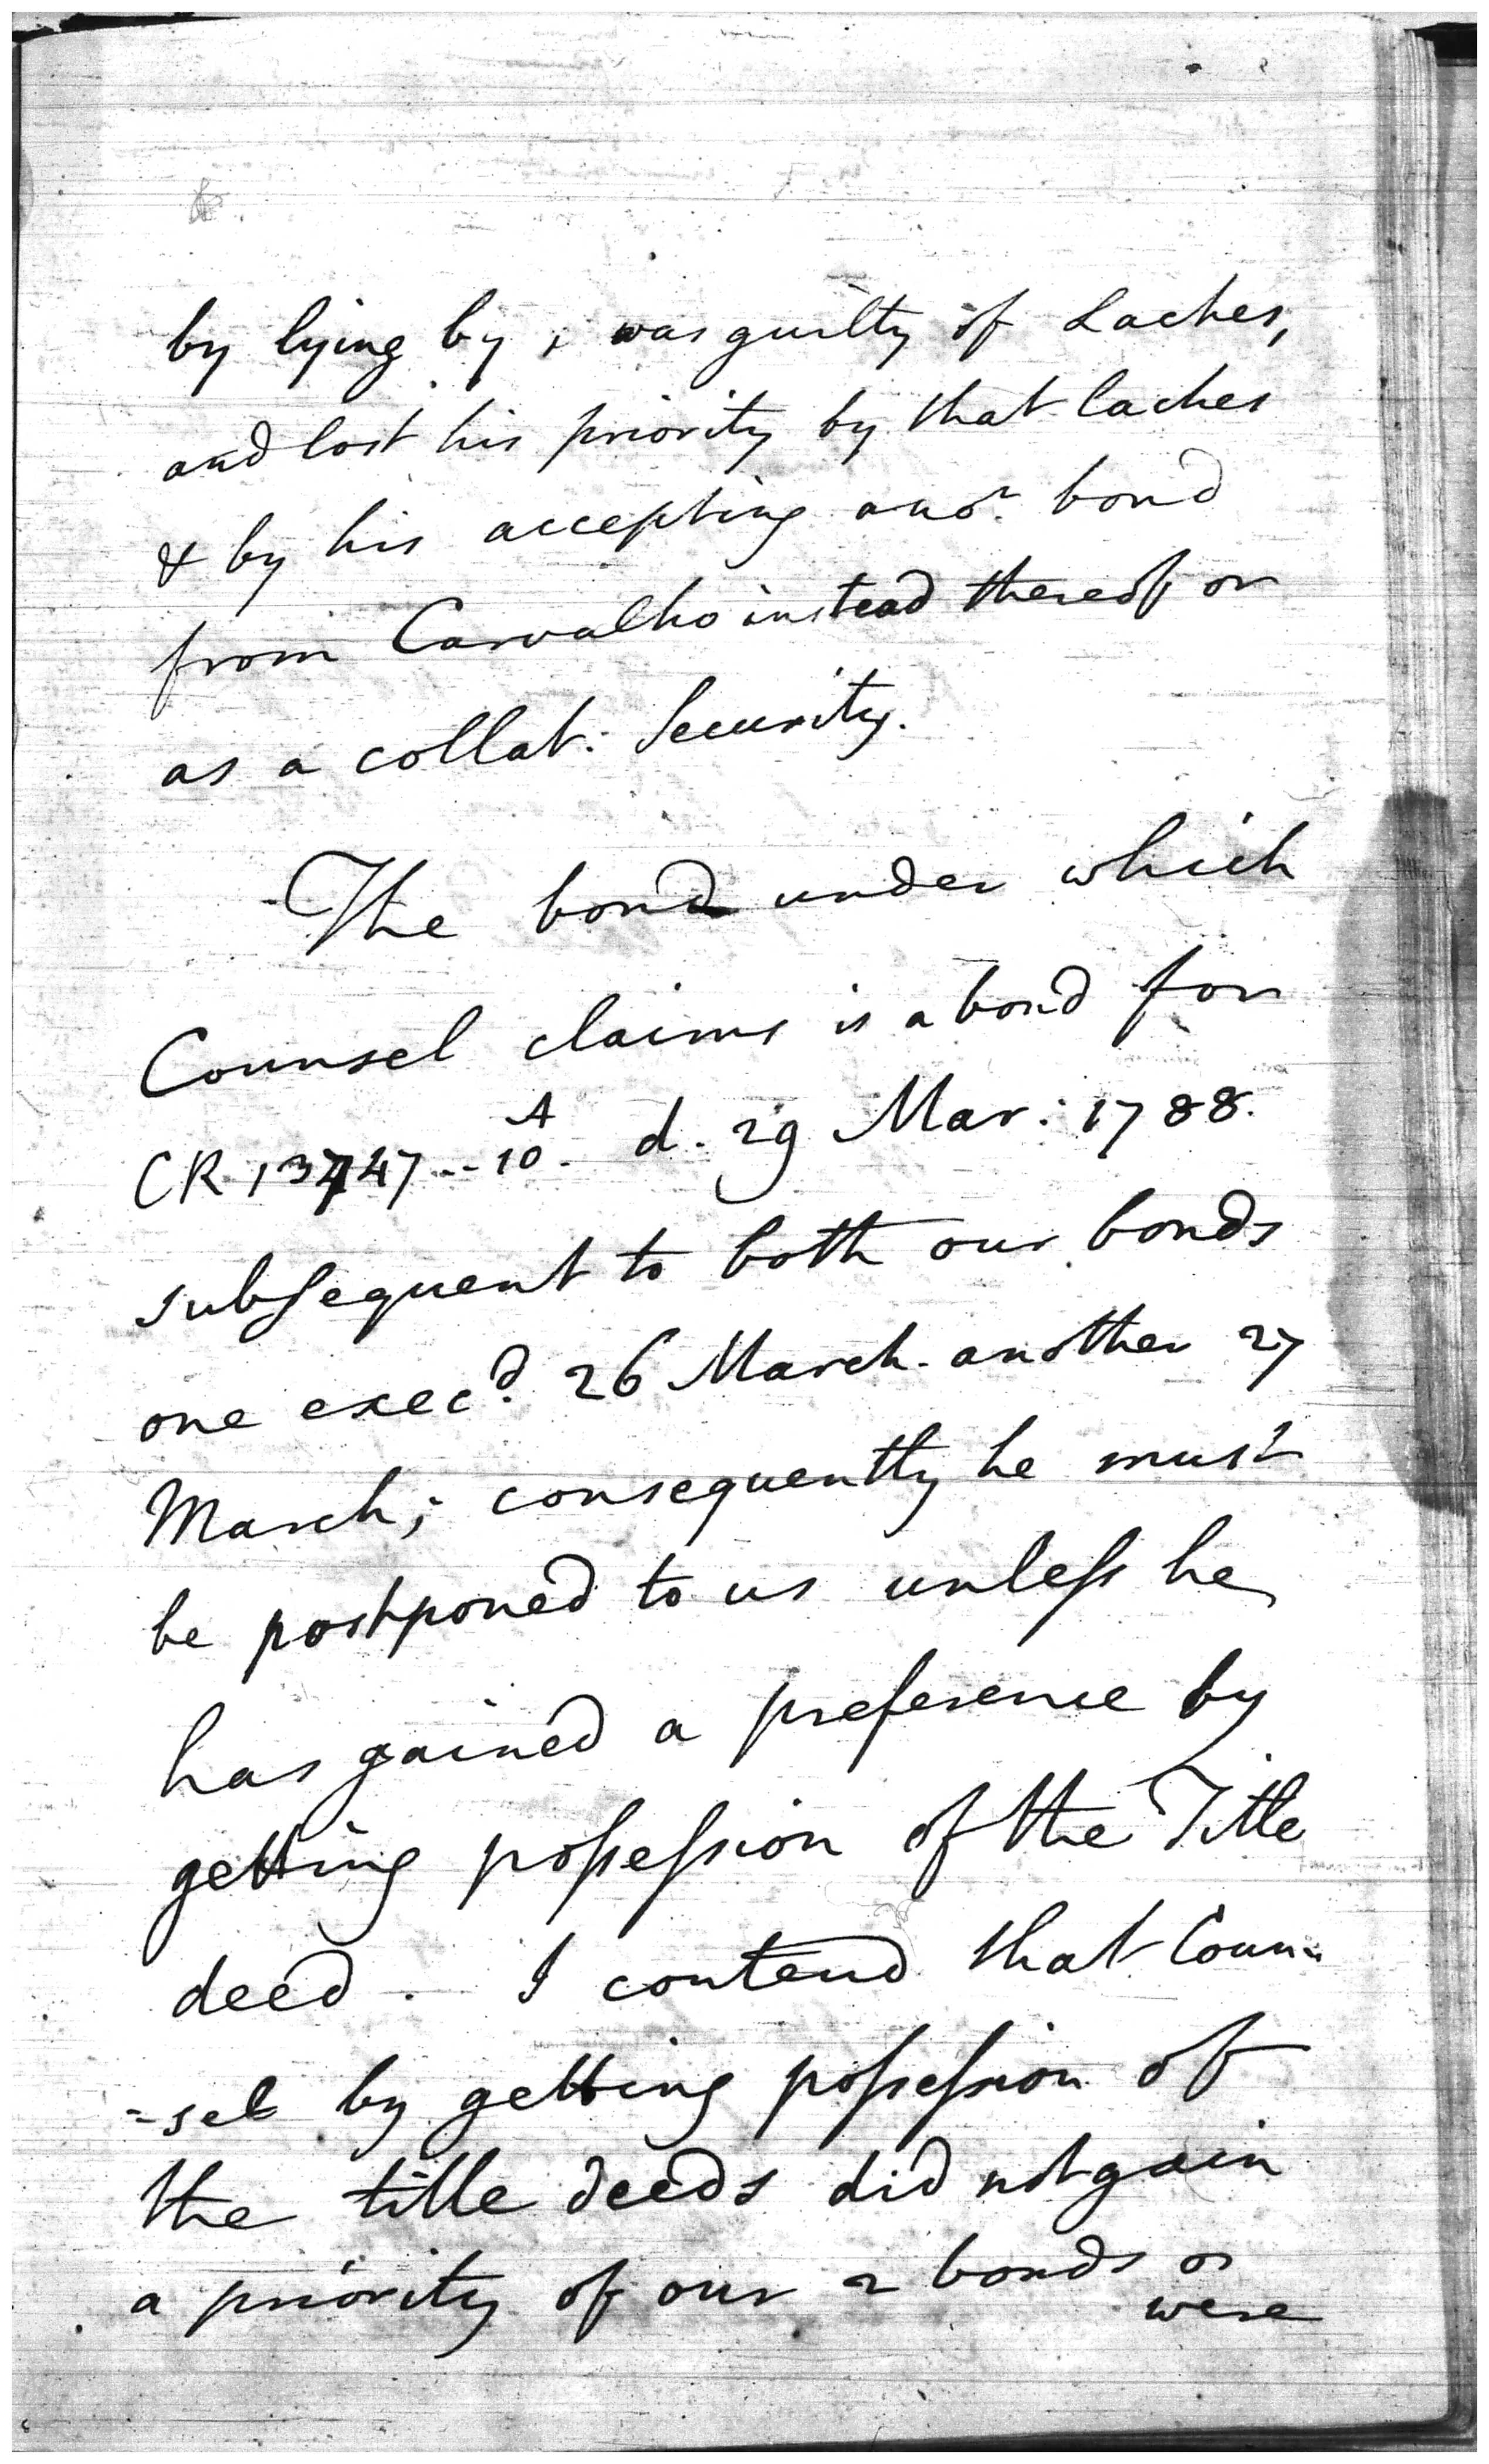 by lying by, was guilty of Laches,
and lost his priority by that laches
& by his accepting anor. bond
from Carvalho instead thereof or
as a collat: Security.
The bond under which
Counsel claims is a bond for
CR 13747--10 A. d. 29 Mar: 1788.
subsequent to both our bonds
one execd. 26 March. another 27
March; consequently he must
be postponed to us unless he
has gained a preference by
getting possession of the Title
deed. I contend that Coun-
-sel by getting possession of
the title deeds did not gain
a priority of our 2 bonds or
were